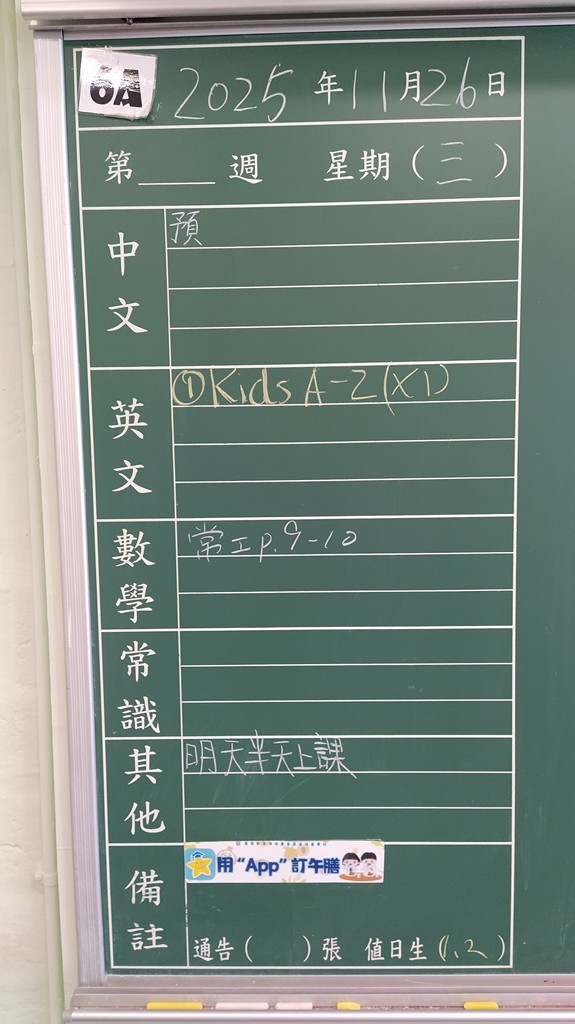 6A 2025年11月26日
第____週 星期(三)
中文 預
英文 ①Kids A-Z(X1)
數學 常工p.9-10
常識
其他 明天半天上課
備註 用“App”訂午膳
通告( )張 值日生(1,2)